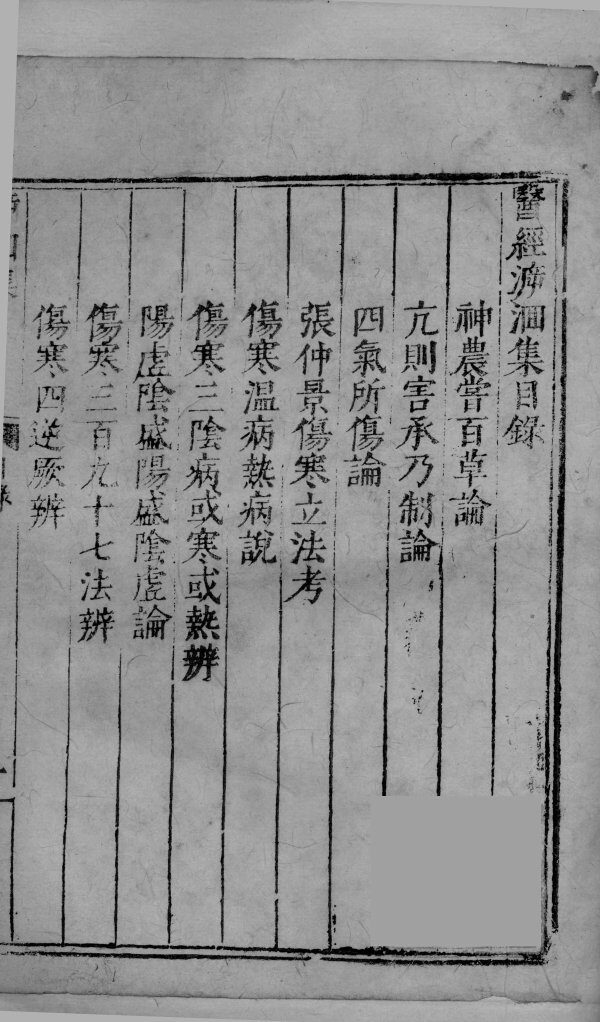 醫經泝洄集目錄
神農嘗百草論
亢則害承乃制論
四氣所傷論
張仲景傷寒立法考
傷寒溫病熱病說
傷寒三陰病或寒或熱辨
陽虛陰盛陽盛陰虛論
傷寒三百九十七法辨
傷寒四逆厥辨